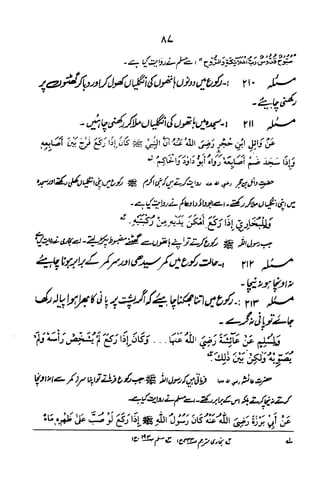 ۸۷
سُبُّوحٌ قُدُّوسٌ رَبُّ الْمَلٰٓئِكَةِ وَالرُّوْحِ" اسے مسلم نے روایت کیا ہے۔
مسئلہ ۲۱۰ :۔ رکوع میں دونوں ہاتھوں کی انگلیاں کھول کر اور دبا کر گھٹنوں پر
رکھنی چاہیئے۔
مسئلہ ۲۱۱ :۔ سجدہ میں ہاتھوں کی انگلیاں ملا کر رکھنی چاہئیں۔
عَنْ وَائِلِ ابْنِ حُجْرٍ رَضِيَ اللهُ عَنْهُ أَنَّ النَّبِيَّ ﷺ كَانَ إِذَا رَكَعَ فَرَّجَ بَيْنَ أَصَابِعِهِ
وَإِذَا سَجَدَ ضَمَّ أَصَابِعَهُ رَوَاهُ أَبُوْ دَاوُدَ وَالْحَاكِمُ
حضرت وائل بن حجر رضی اللہ عنہ روایت کرتے ہیں کہ نبی اکرم ﷺ رکوع میں اپنی انگلیاں کھلی رکھتے اور سجدہ
میں اپنی انگلیاں ملا کر رکھتے۔ اسے ابوداؤد اور حاکم نے روایت کیا ہے۔
وَلِلْبُخَارِيِّ إِذَا رَكَعَ أَمْكَنَ يَدَيْهِ مِنْ رُكْبَتَيْهِ
جب رسول اللہ ﷺ رکوع کرتے تو اپنے ہاتھوں سے گھٹنے مضبوط پکڑ لیتے۔ اسے بخاری نے روایت کیا ہے۔
مسئلہ ۲۱۲ :۔ حالت رکوع میں کمر سیدھی اور سر کمر کے برابر ہونا چاہیئے
نہ اونچا ہو نہ نیچا۔
مسئلہ ۲۱۳ :۔ رکوع میں اتنا جھکنا چاہیئے کہ اگر پشت پر پانی کا بھرا ہوا پیالہ رکھ
جائے تو پانی نہ گرے۔
وَلِمُسْلِمٍ عَنْ عَائِشَةَ رَضِيَ اللهُ عَنْهَا ... وَكَانَ إِذَا رَكَعَ لَمْ يُشْخِصْ رَأْسَهُ وَلَمْ
يُصَوِّبْهُ وَلٰكِنْ بَيْنَ ذٰلِكَ
حضرت عائشہ رضی اللہ عنہا فرماتی ہیں کہ رسول اللہ ﷺ جب رکوع فرماتے تو اپنا سر نہ کمر سے اونچا
کرتے نہ نیچا کرتے بلکہ اس کے برابر رکھتے۔ اسے مسلم نے روایت کیا ہے۔
عَنْ أَبِيْ بَرْزَةَ رَضِيَ اللهُ عَنْهُ كَانَ رَسُوْلُ اللهِ ﷺ إِذَا رَكَعَ لَوْ صُبَّ عَلٰى ظَهْرِهِ مَاءٌ